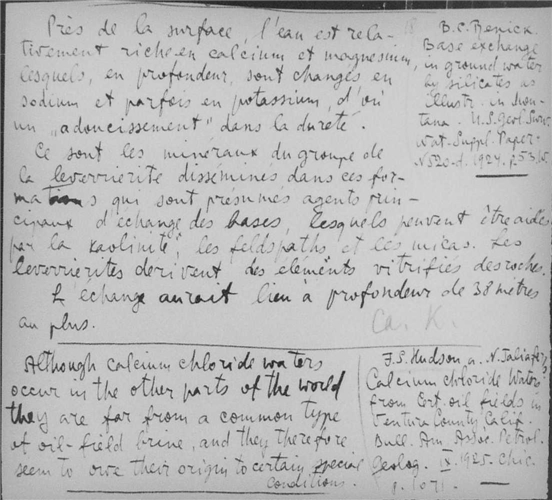 Près de la surface, l'eau est rela-
tivement riche en calcium et magnesium,
lesquels, en profondeur, sont changés en
sodium et parfois en potassium, d'où
un „adoucissement" dans la dureté.
Ce sont les mineraux du groupe de
la leverrierite disseminés dans ces for-
mations qui sont présumés agents prin-
cipaux d'échange des bases, lesquels peuvent être aidés
par la kaolinite, les feldspaths et les micas. Les
leverriérites derivent des éléments vitrifiés des roches.
L'échange aurait lieu à profondeur de 38 metres
au plus.
Ca. K.
B.C. Renick.
Base exchange
in ground water
by silicates as
Illustr. in Mon-
tana. U.S. Geol. Surv.
Wat. Suppl. Paper.
N520-d. 1924. p. 53
Although calcium chloride waters
occur in the other parts of the world
they are far from a common type
of oil-field brine, and they therefore
seem to owe their origin to certain special
conditions.
F.S. Hudson a. N. Taliafer
Calcium chloride Waters
from Cert. oil fields in
Ventura County, Calif.
Bull. Am. Assoc. Petrol.
Geolog. IX. 1925. Chic.
p. 1071.